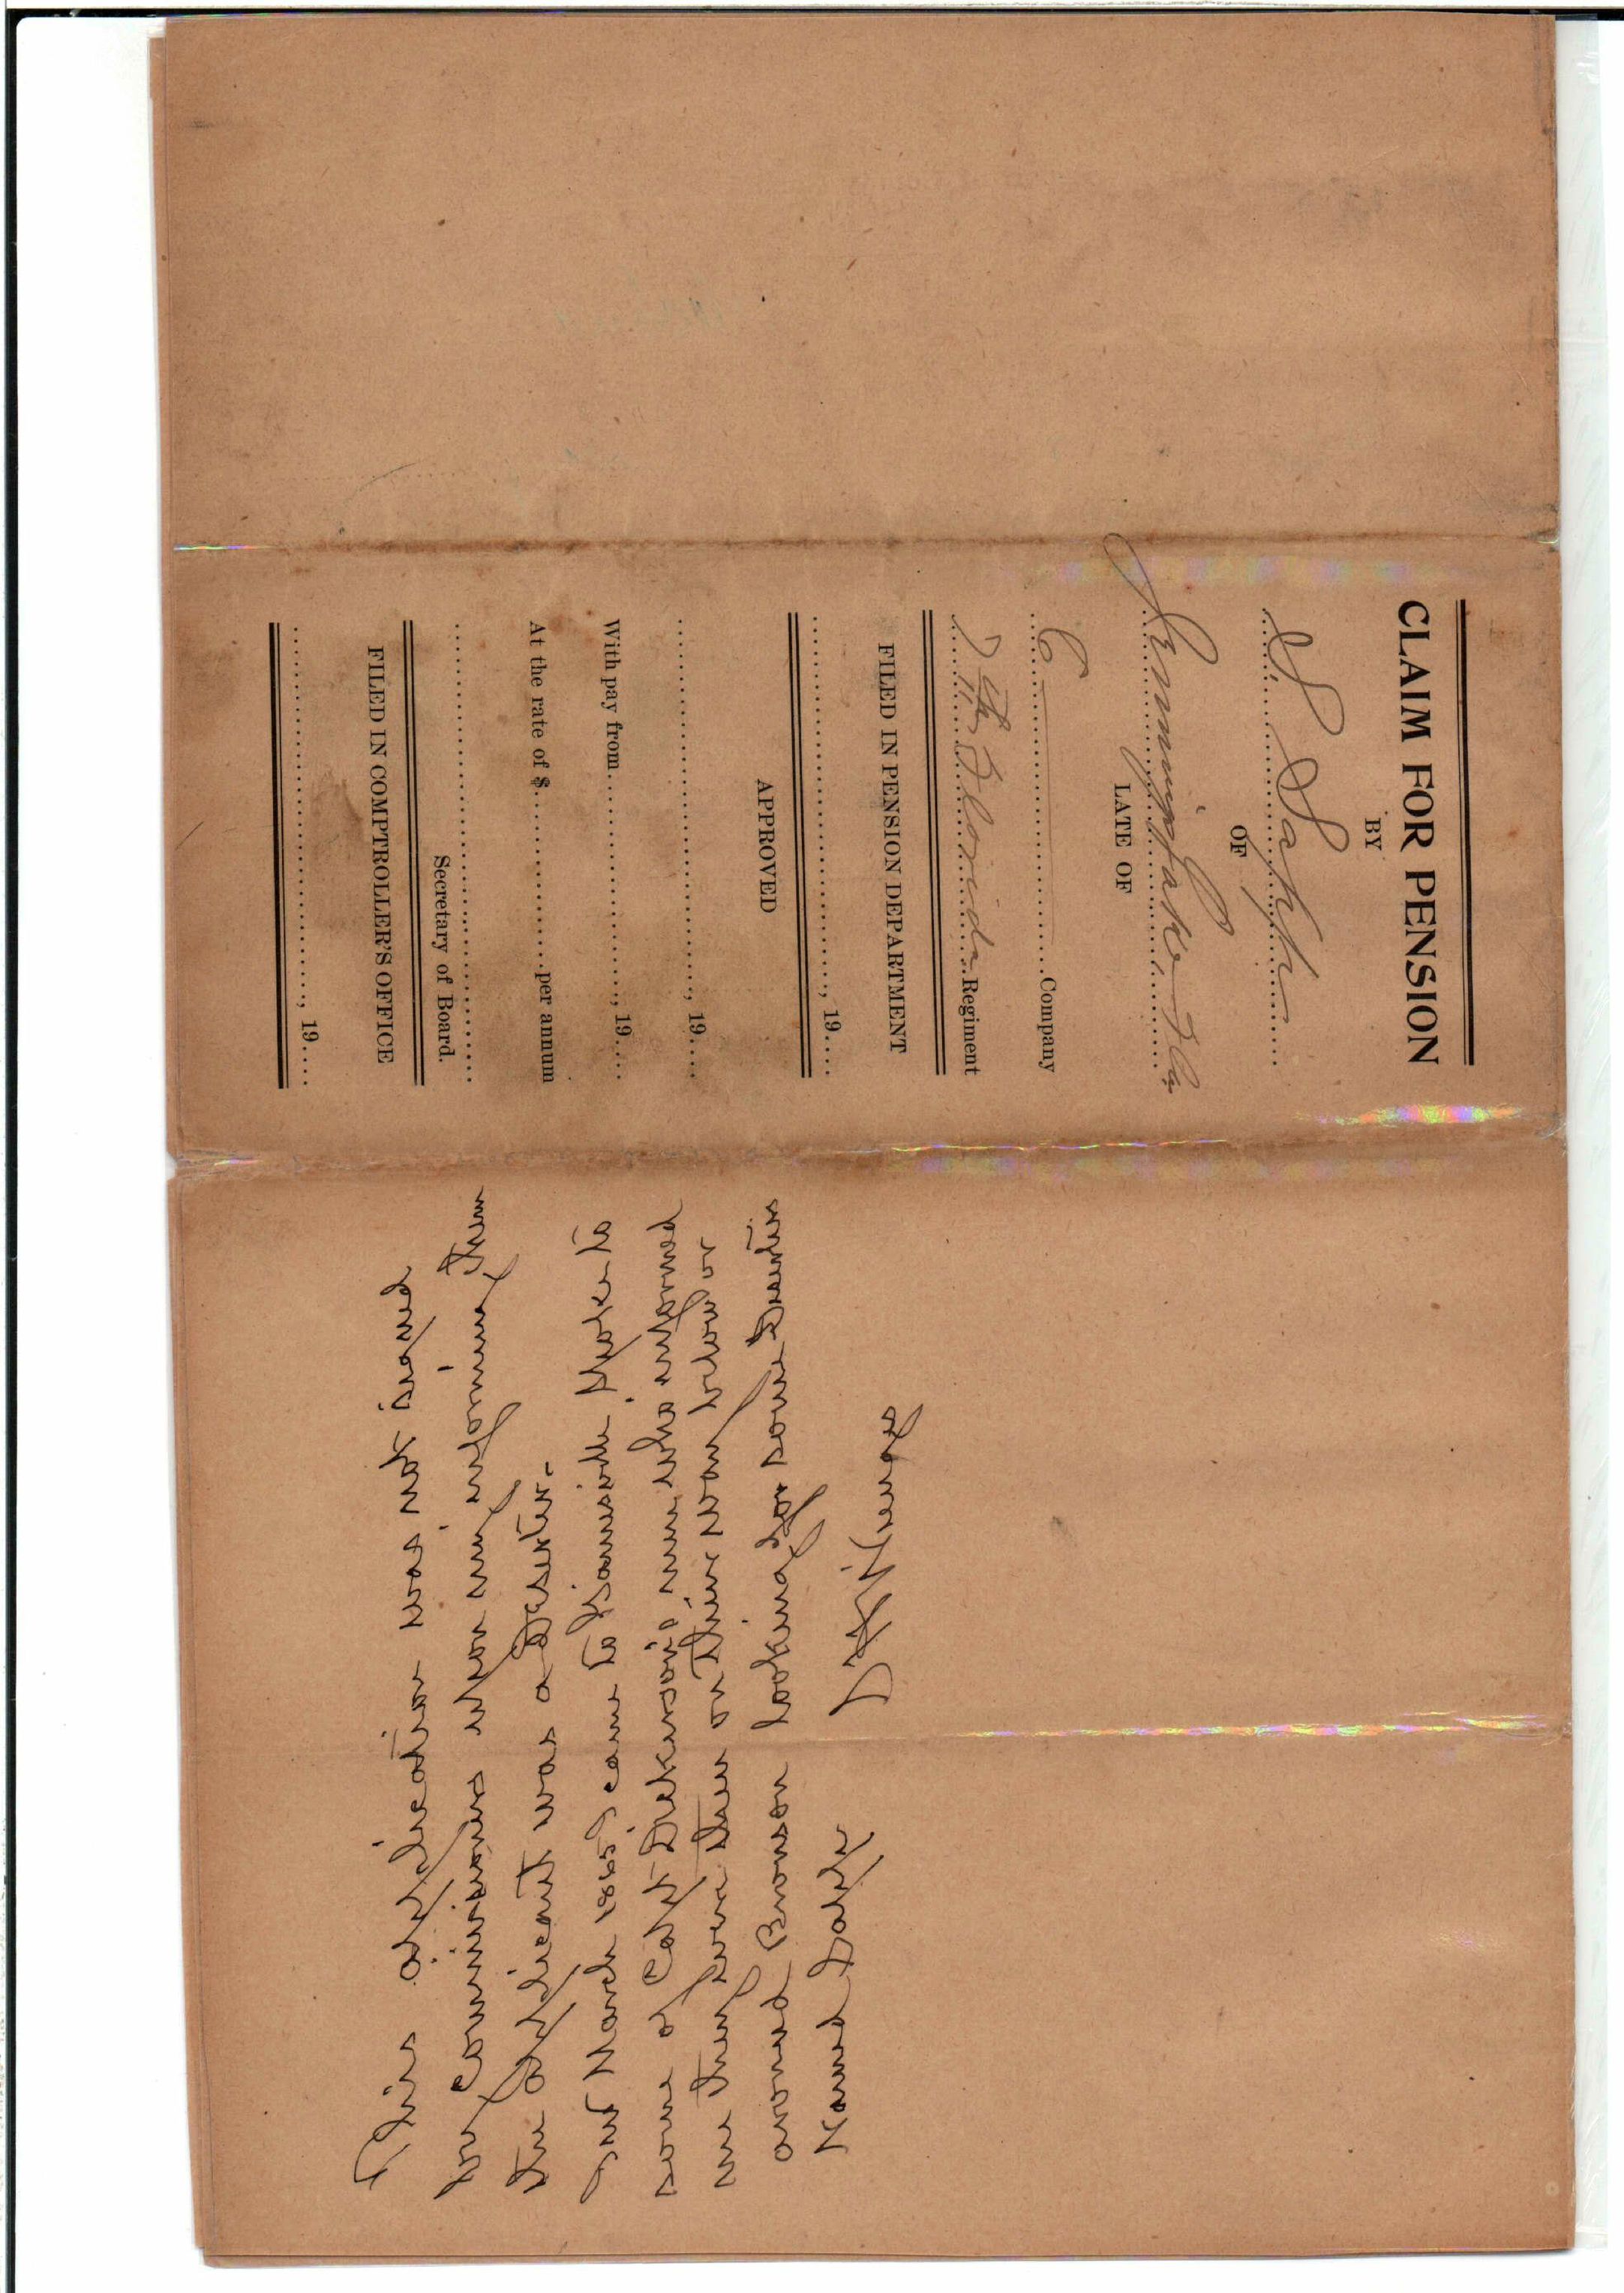 CLAIM FOR PENSION
BY
S Sapp
OF
Fla
LATE OF
C Company
7th Florida Regiment
FILED IN PENSION DEPARTMENT
, 19
APPROVED
, 19
With pay from , 19
At the rate of $ per annum
Secretary of Board.
FILED IN COMPTROLLER'S OFFICE
, 19
This application was not signed
by Commissioners upon my informing them
the applicant was a Deserter.
In March 1865 I came to Gainesville spoke to
some of Capt Dickerson's men who informed
me they were then on their way below or
around Bronson looking for some Deserters
Named Sapp